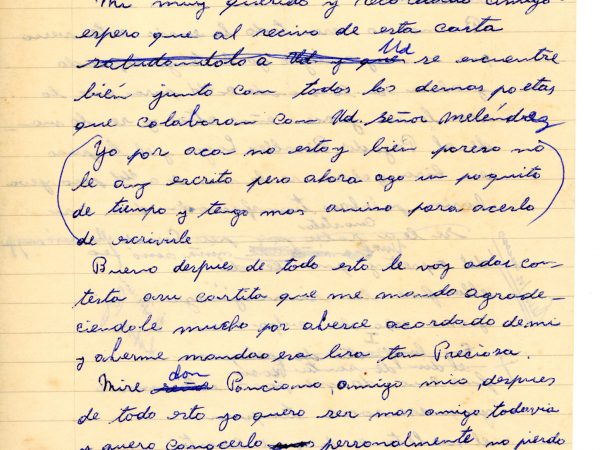 Mi muy querido y recordado amigo
espero que al recivo de esta carta
saludandolo a Ud. y que Ud se encuentre
bién junto con todos los demas poetas
que colaboran con Ud. señor Meléndez
(Yo por aca no estoy bien poreso no
le ay escrito pero ahora ago un poquito
de tiempo y tengo mas animo para acerlo
de escrivirle)
Bueno despues de todo esto le voy adar con-
testa asu cartita que me mando agrade-
ciendole mucho por averce acordado de mi
y averme mandao esa lira tan Preciosa.
Mire señor don Ponciano, amigo mio, despues
de todo esto yo quero ser mas amigo todavia
y quero conocerlo personalmente no pierdo